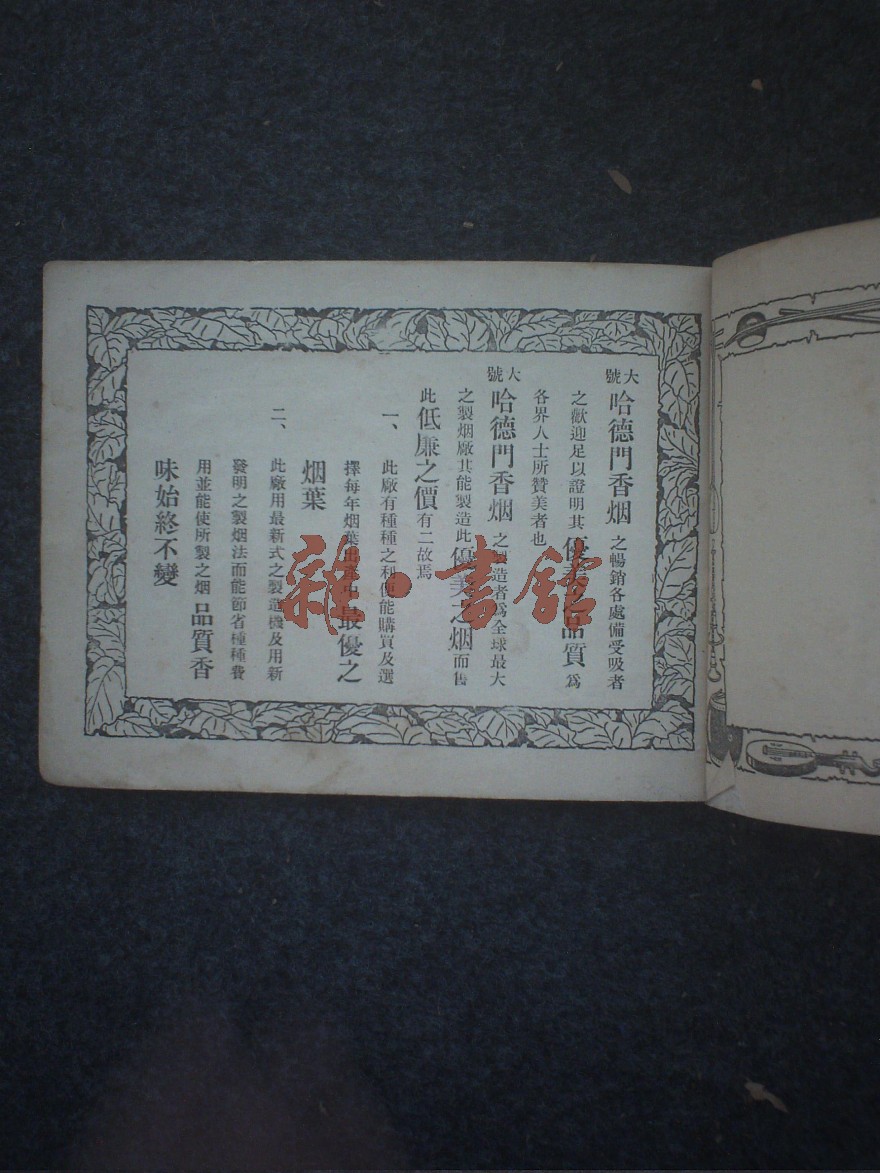 大號哈德門香烟之暢銷各處備受吸者
之歡迎足以證明其優美之品質為
各界人士所贊美者也
大號哈德門香烟之製造者為全球最大
之製烟廠其能製造此優美之烟而售
此低廉之價有二故焉
一、此廠有種種之利便能購買及選
擇每年烟葉出產中最優之
烟葉
二、此廠用最新式之製造機及用新
發明之製烟法而能節省種種費
用並能使所製之烟品質香
味始終不變
雜·書館